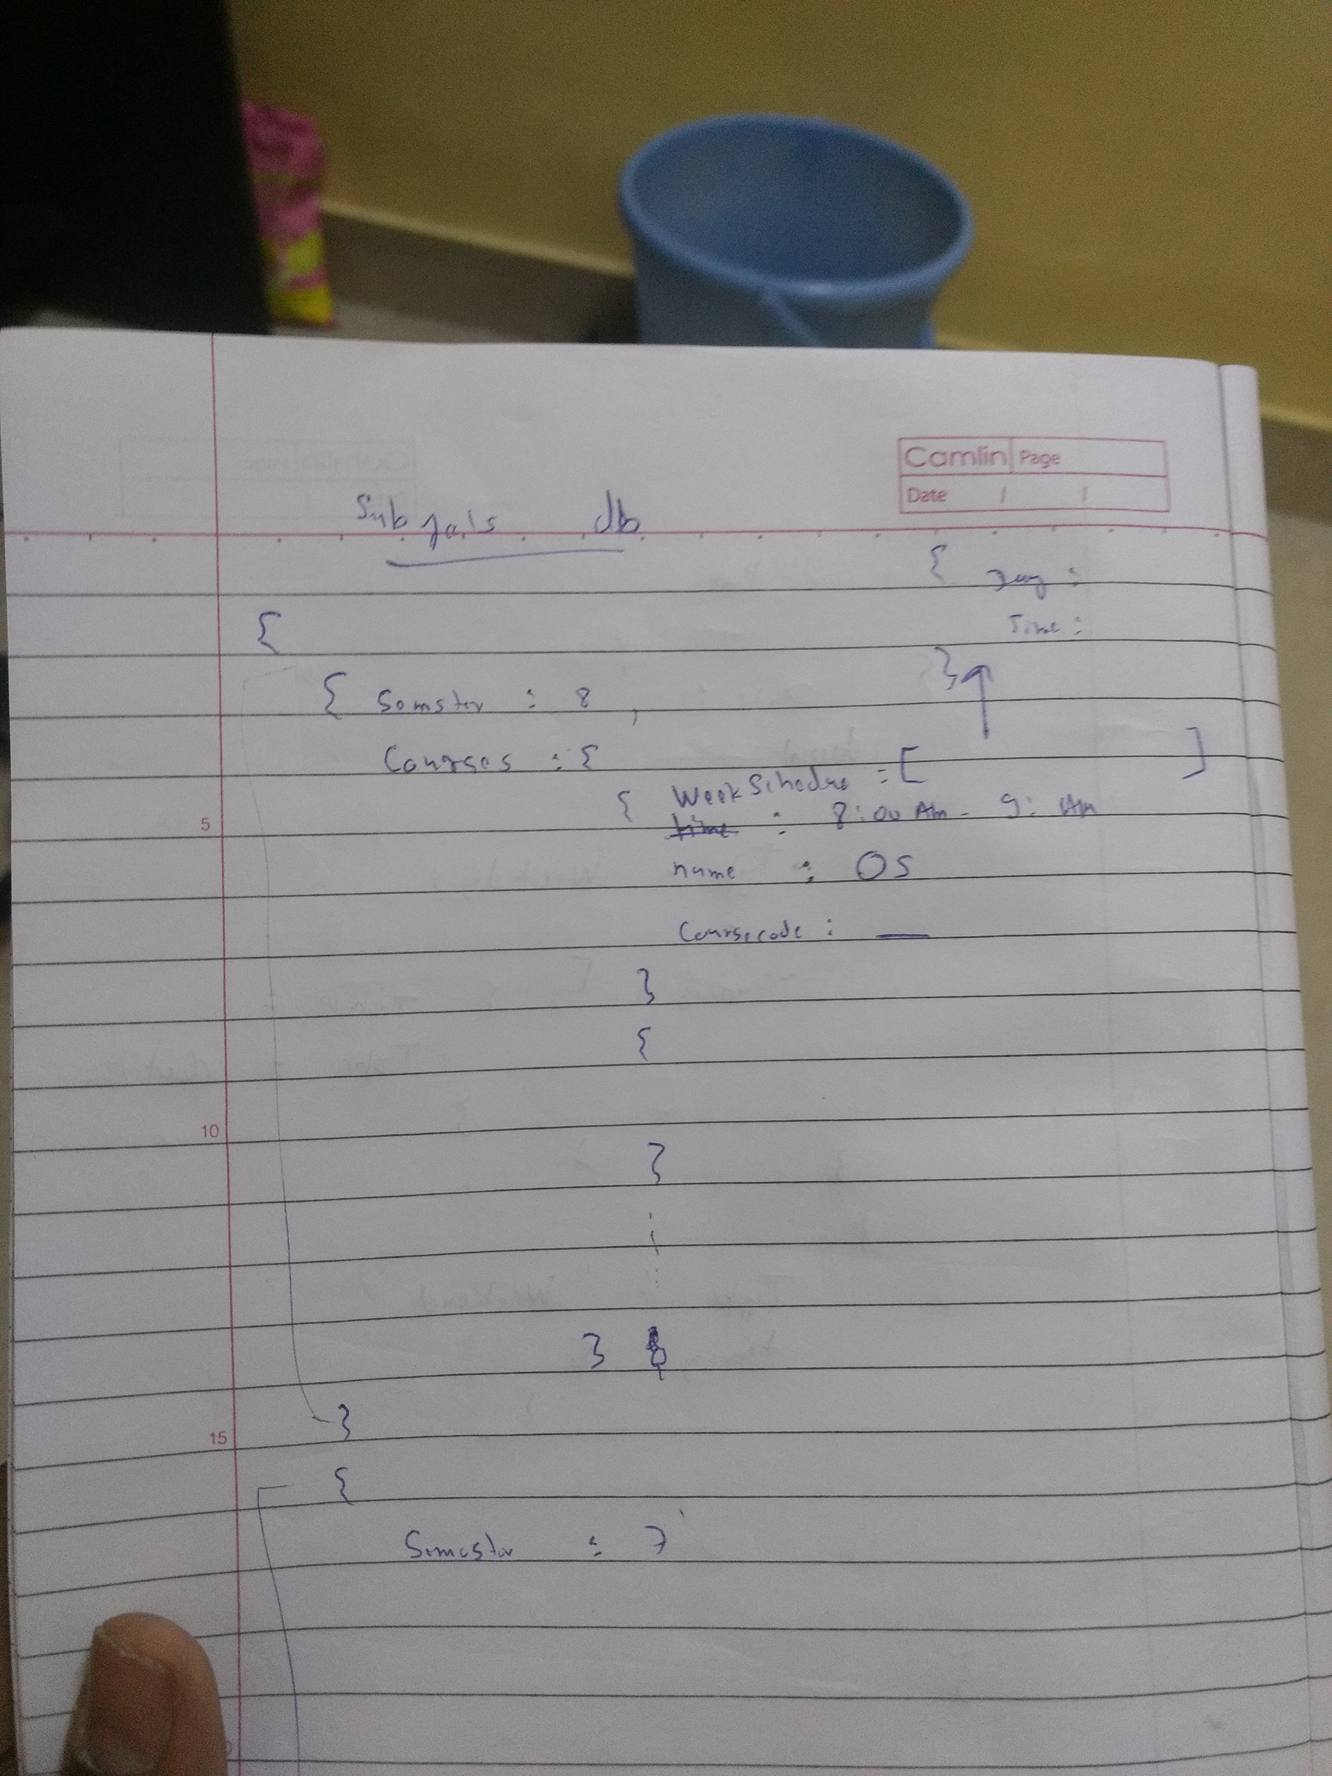 Camlin Page
Date / /
db
{ Day :
Time :
{
}
{ Semster : 8 ,
Courses : {
{ Week Schedule : [ ]
time : 8:00 Am - 9: Am
5
name : OS
Coursecode : —
}
{
10
}
}
}
15
{
Semester : 7